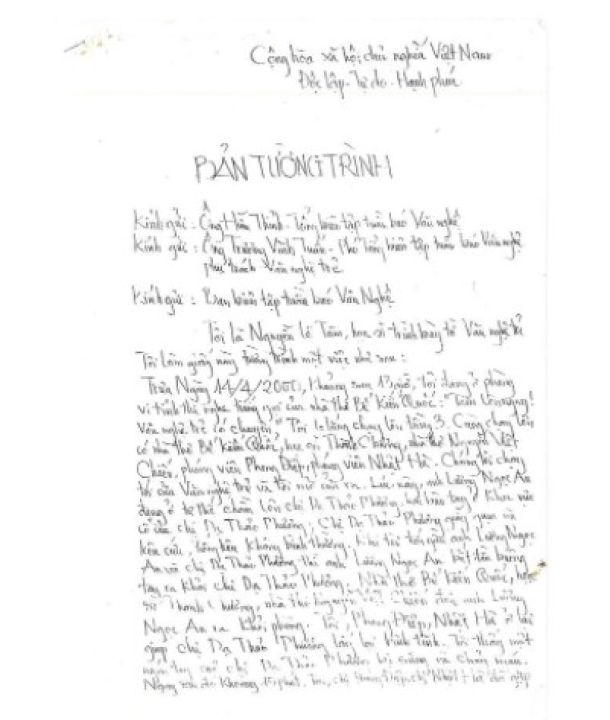 Cộng hòa xã hội chủ nghĩa Việt Nam
Độc lập - Tự do - Hạnh phúc
BẢN TƯỜNG TRÌNH
Kính gửi : Ông Hữu Thỉnh - Tổng biên tập tuần báo Văn nghệ
Kính gửi : Ông Trương Vĩnh Tuấn - Phó tổng biên tập tuần báo Văn nghệ
Phụ trách Văn nghệ trẻ
Kính gửi : Ban biên tập tuần báo Văn Nghệ
Tôi là Nguyễn Lê Tâm, họa sĩ trình bày tờ Văn nghệ trẻ
Tôi làm giấy này tường trình một việc như sau :
Trưa Ngày 14/4/2000, khoảng hơn 13 giờ, tôi đang ở phòng
vi tính thì nghe tiếng gọi của nhà thơ Bế Kiến Quốc: "Tâm
Văn nghệ trẻ có chuyện" Tôi chạy lên tầng 3. Cùng chạy lên
có nhà thơ Bế Kiến Quốc, họa sĩ Thành Chương, nhà thơ Nguyễn Việt
Chiến, phóng viên Phong Điệp, phóng viên Nhật Hà. Chúng tôi chạy
tới cửa Văn nghệ trẻ và tôi mở cửa ra. Lúc này, anh Lương Ngọc An
đang ở tư thế chồm lên chị Dạ Thảo Phương, hai bàn tay
cổ của chị Dạ Thảo Phương; Chị Dạ Thảo Phương
kêu cứu, không bình thường. Khi anh Lương Ngọc
An và chị Dạ Thảo Phương thì anh Lương Ngọc An
tay ra khỏi chị Dạ Thảo Phương. Nhà thơ Bế Kiến Quốc, họa
sĩ Thành Chương, nhà thơ Nguyễn Việt Chiến đưa anh Lương
Ngọc An ra khỏi phòng. Tôi, Phong Điệp, Nhật Hà ở lại
giúp chị Dạ Thảo Phương lấy lại bình tĩnh. Tôi thấy một
ngón tay của chị Dạ Thảo Phương bị và chảy máu.
Ngay sau đó khoảng phút,